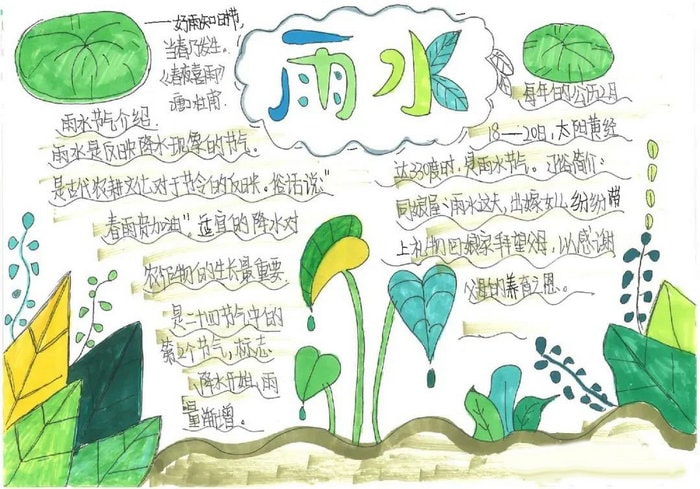 雨水
——好雨知时节，
当春乃发生。
《春夜喜雨》
唐·杜甫
雨水节气介绍
雨水是反映降水现象的节气。
是古代农耕文化对于节令的反映。俗话说：“
春雨贵如油”。适宜的降水对
农作物的生长最重要
是二十四节气中的
第2个节气，标志
降水开始，雨
量渐增。
每年的公历2月
18—20日，太阳黄经
达330度时，是雨水节气。习俗简介：
回娘屋：雨水这天，出嫁女儿纷纷带
上礼物回娘家拜望父母，以感谢
父母的养育之恩。